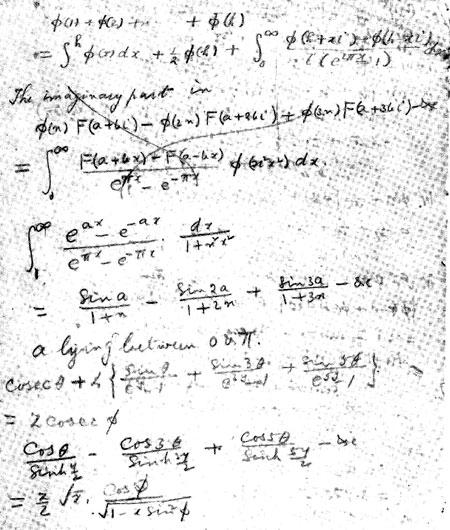 φ(1) + φ(2) + + φ(h)
= ∫₀^h φ(x) dx + ½ φ(h) + ∫₀^∞ φ(h+xi) - φ(h-xi) / i(e^2πx - 1)
The imaginary part in
φ(n) F(a+bi) - φ(2n) F(a+2bi) + φ(3n) F(a+3bi) - &c
= ∫₀^∞ F(a+bx) - F(a-bx) / e^πx - e^-πx φ( ) dx.
∫₀^∞ e^ax - e^-ax / e^πx - e^-πx . dx / 1+n²x²
= Sin a / 1+n - Sin 2a / 1+2n + Sin 3a / 1+3n - &c
a lying between 0 & π.
Cosec θ + 4 { Sin θ / e^y - 1 + Sin 3θ / e^3y - 1 + Sin 5θ / e^5y - 1 }
= z cosec φ
Cos θ / Sinh y/2 - Cos 3θ / Sinh 3y/2 + Cos 5θ / Sinh 5y/2 - &c
= z/2 √x . Cos φ / √1 - x Sin² φ